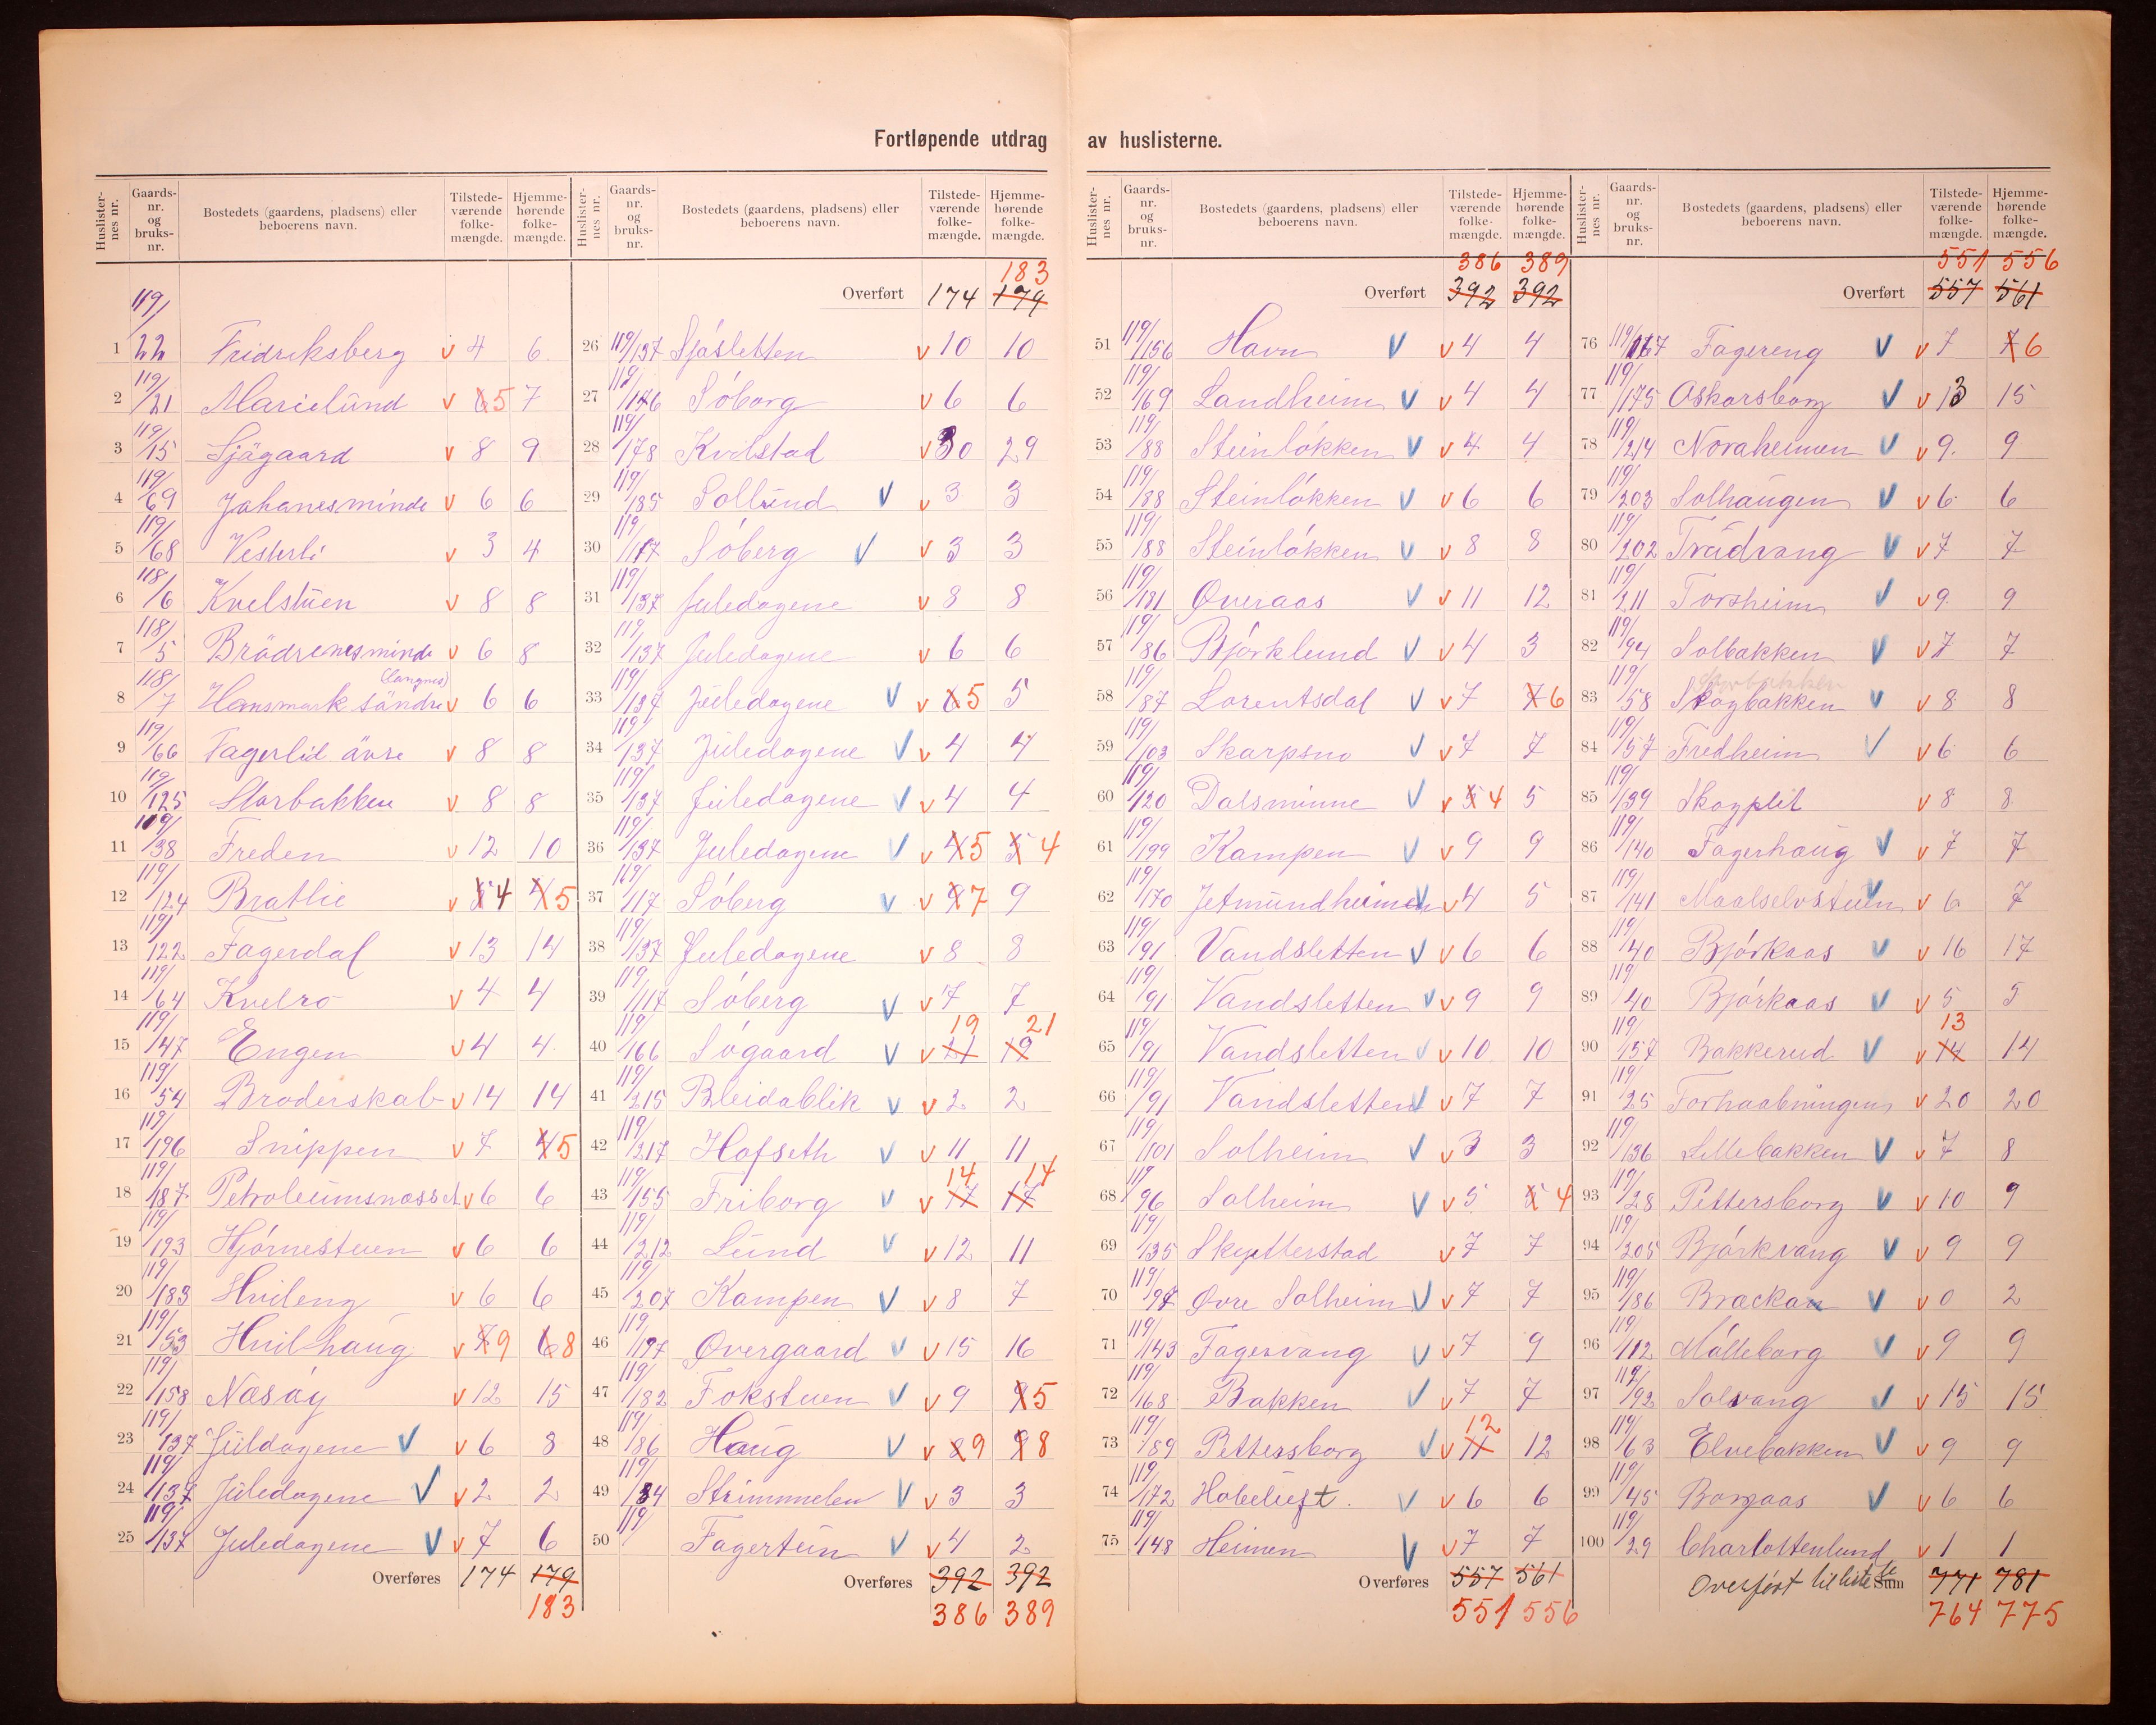 Fortløpende utdrag av huslisterne.
Huslister-nes nr. Gaards-nr. og bruks-nr. Bostedets (gaardens, pladsens) eller beboerens navn. Tilstede-værende folke-mængde. Hjemme-hørende folke-mængde.
119/
1 22 Fridriksberg v 4 6
2 119/21 Marielund v 6 5 7
3 119/15 Sjøgaard v 8 9
4 119/69 Johanesminde v 6 6
5 119/68 Vesterli v 3 4
6 118/6 Kvelstuen v 8 8
7 118/5 Brödrenesminde v 6 8
8 118/7 Hansmark söndre (Langnes) v 6 6
9 119/66 Fagerlid övre v 8 8
10 119/125 Storbakken v 8 8
11 119/38 Freden v 12 10
12 119/124 Bratlie v 5 4 4 5
13 119/122 Fagerdal v 13 14
14 119/64 Kvelro v 4 4
15 119/47 Engen v 4 4
16 119/54 Broderskab v 14 14
17 119/196 Snippen v 7 4 5
18 119/187 Petroleumsnasset v 6 6
19 119/193 Hjörnestuen v 6 6
20 119/183 Hvileng v 6 6
21 119/153 Hvilhaug v 7 9 6 8
22 119/158 Næsöy v 12 15
23 119/137 Juldagene v v 6 8
24 119/137 Juledagene v v 2 2
25 119/137 Juledagene v v 7 6
Overføres 174 179
183
Huslister-nes nr. Gaards-nr. og bruks-nr. Bostedets (gaardens, pladsens) eller beboerens navn. Tilstede-værende folke-mængde. Hjemme-hørende folke-mængde.
183
Overført 174 179
26 119/137 Sjösletten v 10 10
27 119/146 Söborg v 6 6
28 119/178 Kvilstad v 30 29
29 119/185 Sollund v v 3 3
30 119/117 Söberg v v 3 3
31 119/137 Juledagene v 8 8
32 119/137 Juledagene v 6 6
33 119/137 Juledagene v v 6 5 5
34 119/137 Juledagene v v 4 4
35 119/137 Juledagene v v 4 4
36 119/137 Juledagene v v 4 5 5 4
37 119/117 Söberg v v 8 7 9
38 119/137 Juledagene v 8 8
39 119/117 Söberg v v 7 7
19 21
40 119/166 Sögaard v v 21 19
41 119/215 Bleidablik v v 2 2
42 119/217 Hofseth v v 11 11
14 14
43 119/155 Friborg v v 17 17
44 119/212 Lund v v 12 11
45 119/207 Kampen v v 8 7
46 119/197 Øvergaard v v 15 16
47 119/182 Fokstuen v v 9 9 5
48 119/186 Haug v v 8 9 9 8
49 119/34 Strimmelen v v 3 3
50 119/ Fagertun v v 4 2
Overføres 392 392
386 389
Huslister-nes nr. Gaards-nr. og bruks-nr. Bostedets (gaardens, pladsens) eller beboerens navn. Tilstede-værende folke-mængde. Hjemme-hørende folke-mængde.
386 389
Overført 392 392
51 119/156 Havn v v 4 4
52 119/169 Landheim v v 4 4
53 119/88 Steinlökken v v 4 4
54 119/88 Steinlökken v v 6 6
55 119/88 Steinlökken v v 8 8
56 119/181 Øveraas v v 11 12
57 119/86 Björklund v v 4 3
58 119/87 Lorentsdal v v 7 7 6
59 119/103 Skarpsno v v 7 7
60 119/120 Dalsminne v v 5 4 5
61 119/199 Kampen v v 9 9
62 119/170 Jetmundheimen v v 4 5
63 119/91 Vandsletten v v 6 6
64 119/91 Vandsletten v v 9 9
65 119/91 Vandsletten v v 10 10
66 119/91 Vandsletten v v 7 7
67 119/101 Solheim v v 3 3
68 119/96 Solheim v v 5 5 4
69 119/135 Skytterstad v 7 7
70 119/97 Øvre Solheim v v 7 7
71 119/143 Fagervang v v 7 9
72 119/168 Bakken v v 7 7
12
73 119/189 Pettersborg v v 11 12
74 119/172 Hobeluft. v v 6 6
75 119/148 Heimen v v 7 7
Overføres 557 561
551 556
Huslister-nes nr. Gaards-nr. og bruks-nr. Bostedets (gaardens, pladsens) eller beboerens navn. Tilstede-værende folke-mængde. Hjemme-hørende folke-mængde.
551 556
Overført 557 561
76 119/167 Fagereng v v 7 7 6
77 119/175 Oskarsborg v v 13 15
78 119/214 Noraheimen v v 9 9
79 119/203 Solhaugen v v 6 6
80 119/202 Trädvang v v 7 7
81 119/211 Forsheim v v 9 9
82 119/94 Solbakken v v 7 7
83 119/58 Skogbakken v v 8 8
84 119/57 Fredheim v v 6 6
85 119/139 Skogplit v 8 8
86 119/140 Fagerhaug v v 7 7
87 119/141 Maalselvstuen v v 6 7
88 119/40 Björkaas v v 16 17
89 119/40 Björkaas v v 5 5
13
90 119/157 Bakkerud v v 14 14
91 119/25 Forhaabningen v 20 20
92 119/136 Lillebakken v v 7 8
93 119/28 Pettersborg v v 10 9
94 119/205 Björkvang v v 9 9
95 119/186 Brackan v v 0 2
96 119/112 Mölleborg v v 9 9
97 119/92 Solvang v v 15 15
98 119/63 Elvebakken v v 9 9
99 119/45 Borgaas v v 6 6
100 119/29 Charlottenlund v 1 1
Overført til liste Sum 771 781
764 775